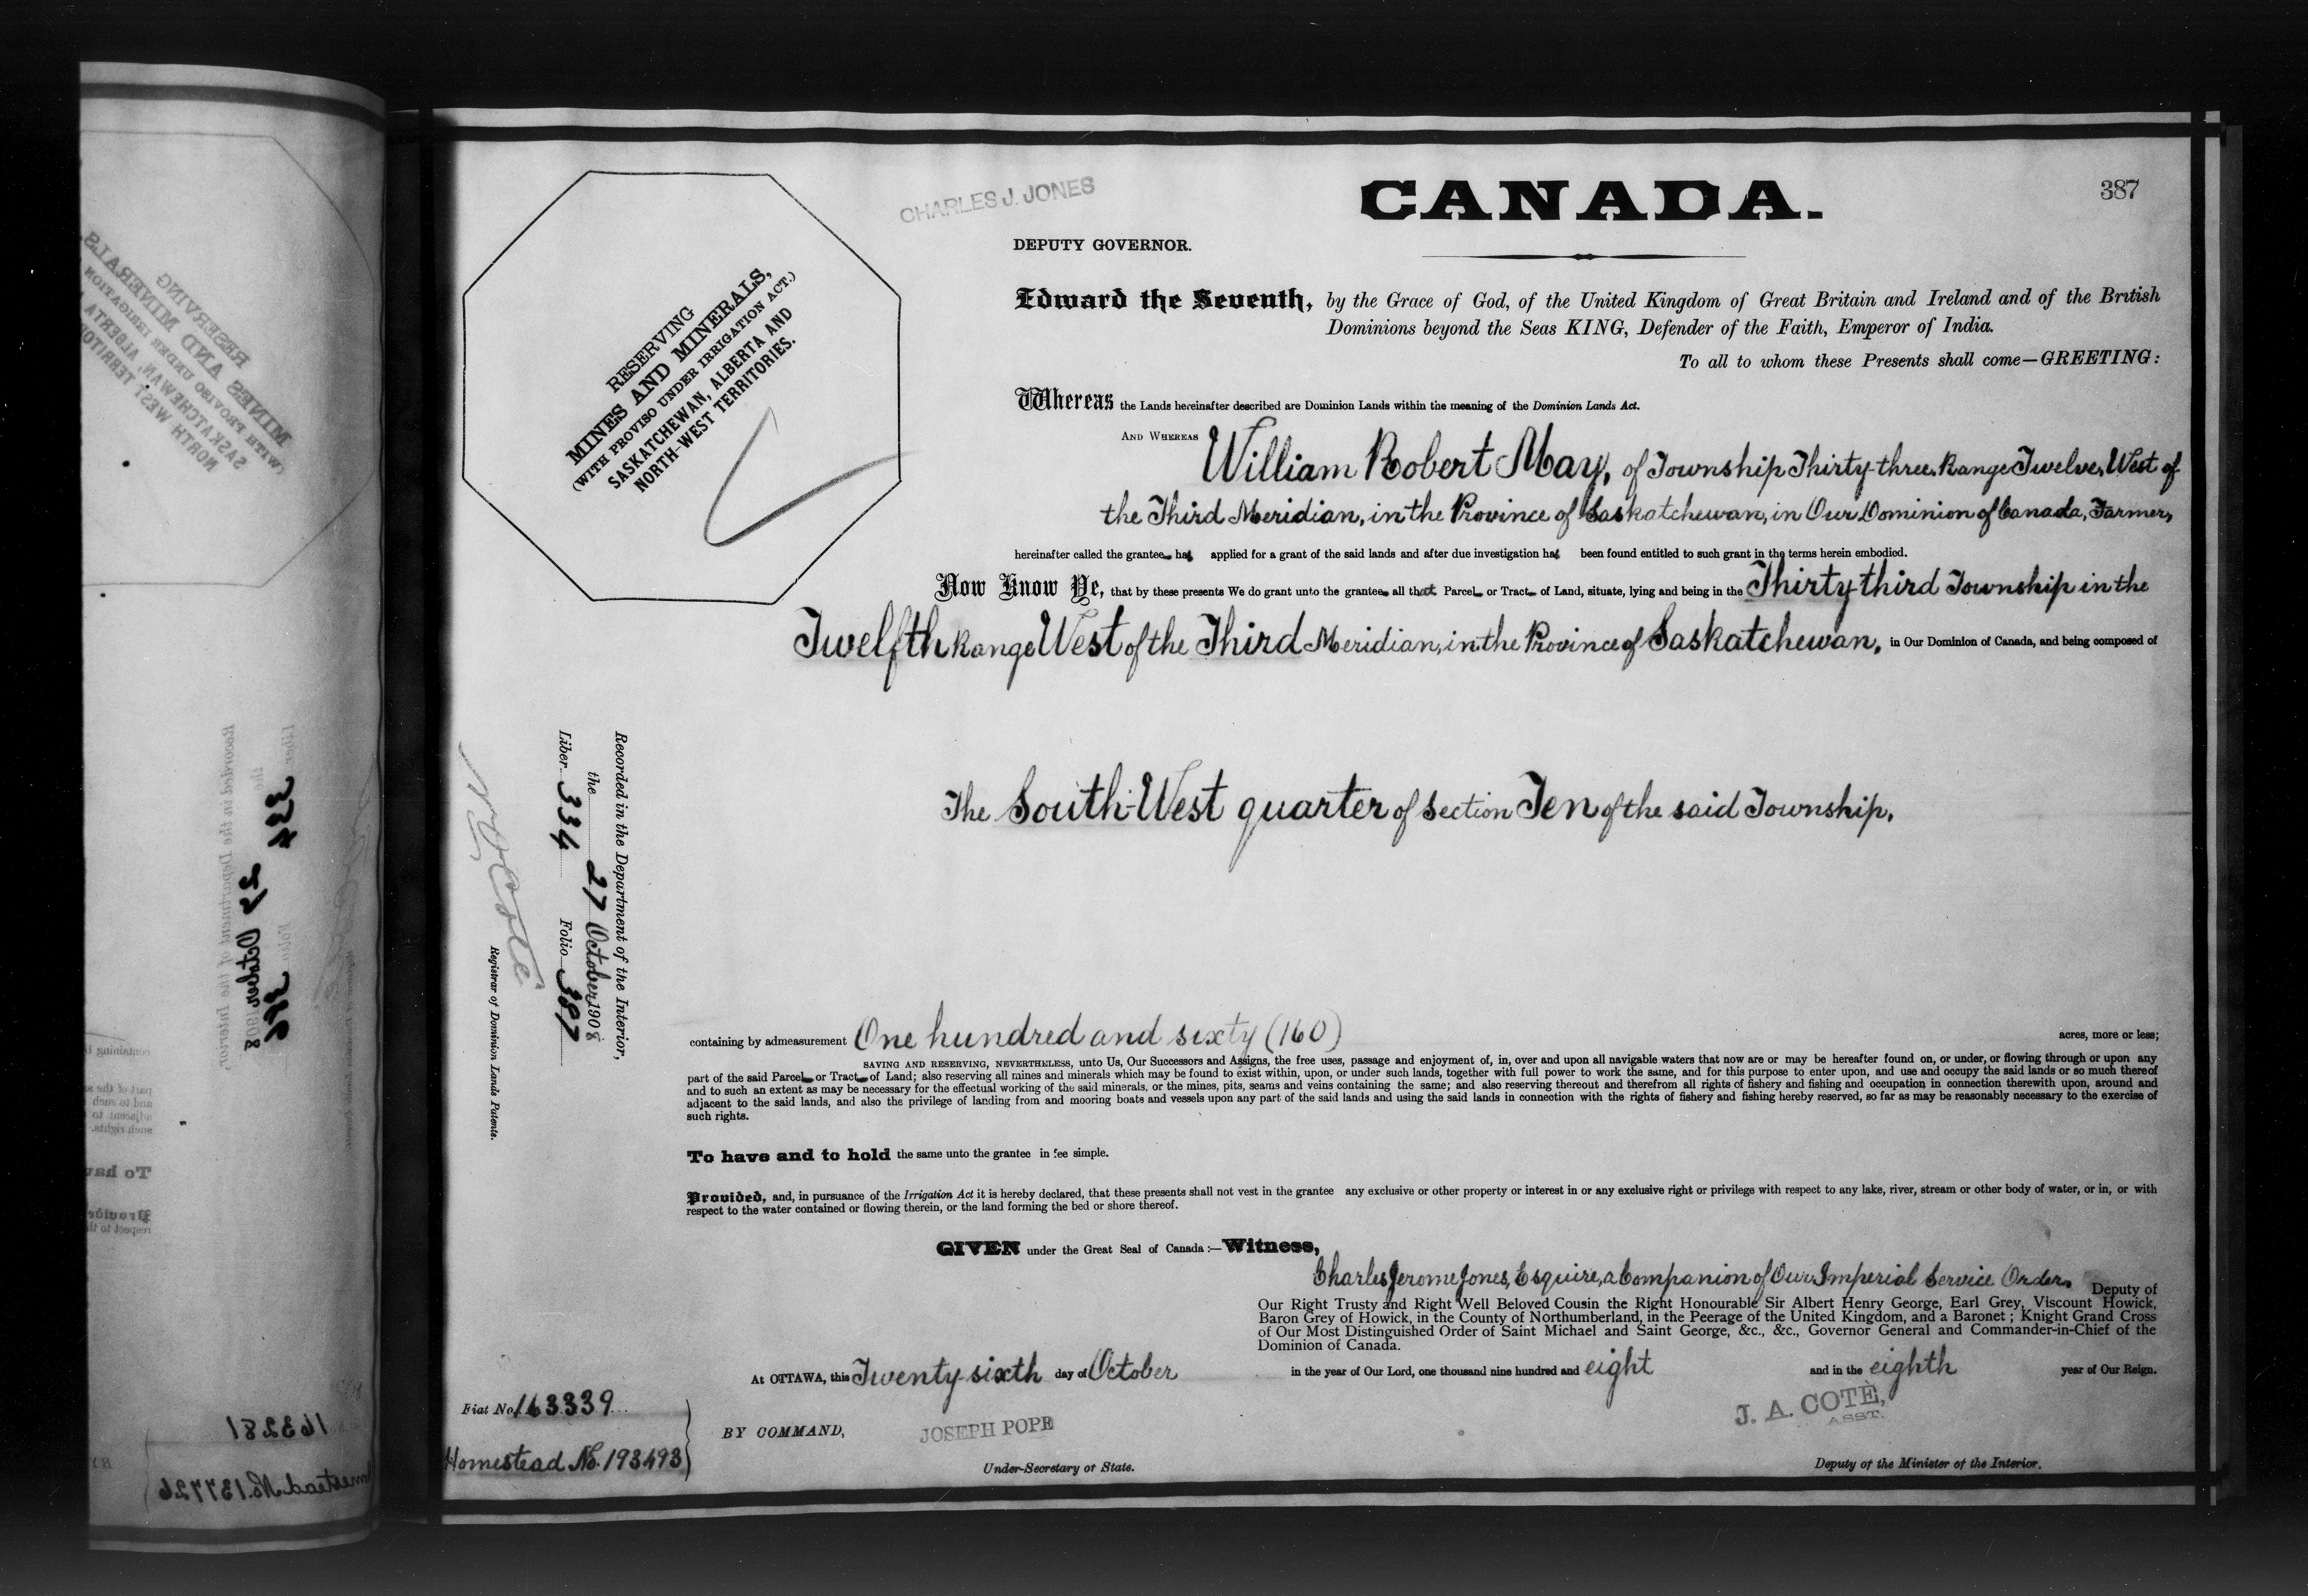 387
CHARLES J. JONES
CANADA.
DEPUTY GOVERNOR.
RESERVING
MINES AND MINERALS,
(WITH PROVISO UNDER IRRIGATION ACT.)
SASKATCHEWAN, ALBERTA AND
NORTH-WEST TERRITORIES.
Edward the Seventh, by the Grace of God, of the United Kingdom of Great Britain and Ireland and of the British
Dominions beyond the Seas KING, Defender of the Faith, Emperor of India.
To all to whom these Presents shall come—GREETING:
Whereas the Lands hereinafter described are Dominion Lands within the meaning of the Dominion Lands Act.
AND WHEREAS William Robert May, of Township Thirty-three, Range Twelve, West of
the Third Meridian, in the Province of Saskatchewan, in Our Dominion of Canada, Farmer,
hereinafter called the grantee has applied for a grant of the said lands and after due investigation has been found entitled to such grant in the terms herein embodied.
Now Know Ye, that by these presents We do grant unto the grantee all that Parcel or Tract of Land, situate, lying and being in the Thirty-third Township in the
Twelfth Range West of the Third Meridian, in the Province of Saskatchewan, in Our Dominion of Canada, and being composed of
The South-West quarter of Section Ten of the said Township.
Recorded in the Department of the Interior,
the 27 October 1908
Liber 334 Folio 387
N O Coté
Registrar of Dominion Lands Patents.
containing by admeasurement One hundred and sixty (160) acres, more or less;
SAVING AND RESERVING, NEVERTHELESS, unto Us, Our Successors and Assigns, the free uses, passage and enjoyment of, in, over and upon all navigable waters that now are or may be hereafter found on, or under, or flowing through or upon any
part of the said Parcel or Tract of Land; also reserving all mines and minerals which may be found to exist within, upon, or under such lands, together with full power to work the same, and for this purpose to enter upon, and use and occupy the said lands or so much thereof
and to such an extent as may be necessary for the effectual working of the said minerals, or the mines, pits, seams and veins containing the same; and also reserving thereout and therefrom all rights of fishery and fishing and occupation in connection therewith upon, around and
adjacent to the said lands, and also the privilege of landing from and mooring boats and vessels upon any part of the said lands and using the said lands in connection with the rights of fishery and fishing hereby reserved, so far as may be reasonably necessary to the exercise of
such rights.
To have and to hold the same unto the grantee in fee simple.
Provided, and, in pursuance of the Irrigation Act it is hereby declared, that these presents shall not vest in the grantee any exclusive or other property or interest in or any exclusive right or privilege with respect to any lake, river, stream or other body of water, or in, or with
respect to the water contained or flowing therein, or the land forming the bed or shore thereof.
GIVEN under the Great Seal of Canada:—Witness,
Charles Jerome Jones, Esquire, a Companion of Our Imperial Service Order, Deputy of
Our Right Trusty and Right Well Beloved Cousin the Right Honourable Sir Albert Henry George, Earl Grey, Viscount Howick,
Baron Grey of Howick, in the County of Northumberland, in the Peerage of the United Kingdom, and a Baronet; Knight Grand Cross
of Our Most Distinguished Order of Saint Michael and Saint George, &c., &c., Governor General and Commander-in-Chief of the
Dominion of Canada.
At OTTAWA, this Twenty-sixth day of October in the year of Our Lord, one thousand nine hundred and eight and in the eighth year of Our Reign.
Fiat No. 163339
Homestead No. 193493
BY COMMAND,
JOSEPH POPE
Under-Secretary of State.
J. A. COTÈ,
ASST.
Deputy of the Minister of the Interior.